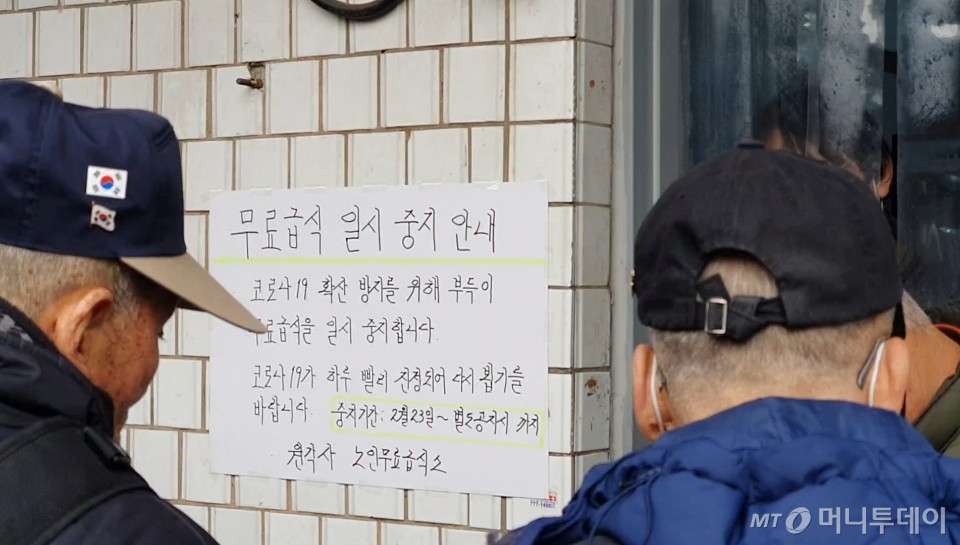 무료급식 일시 중지 안내
코로나19 확산 방지를 위해 부득이
무료급식을 일시 중지합니다.
코로나19가 하루 빨리 진정되어 다시 뵙기를
바랍니다. 중지기간: 2월23일~ 별도공지시 까지
원각사 노인무료급식소
MT 머니투데이